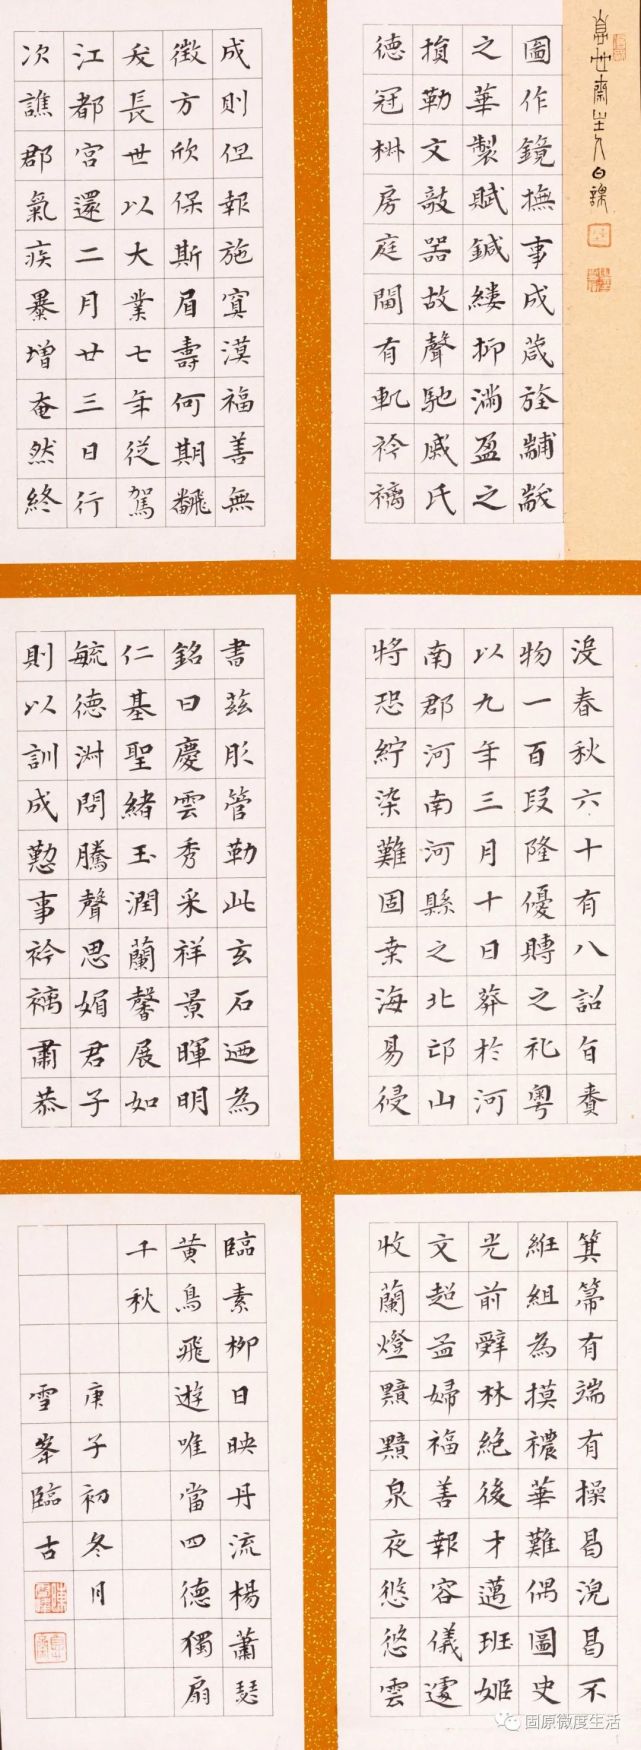 世齋主人日課
圖作鏡撫事成葴旌黼黻
之華製賦鍼縷抑滿盈之
損勒文敲器故聲馳戚氏
德冠椒房庭闈有軌衿褵
成則但報施寘漠福善無
徵方欣保斯眉壽何期飜
矣長世以大業七年從駕
江都宮還二月廿三日行
次譙郡氣疾暴增奄然終
沒春秋六十有八詔旨賚
物一百段隆優賻之礼粵
以九年三月十日葬於河
南郡河南河縣之北邙山
將恐紵染難固桒海易侵
書茲彤管勒此玄石迺為
銘曰慶雲秀采祥景暉明
仁基聖緒玉潤蘭馨展如
毓德淋問騰聲思媚君子
則以訓成懃事衿褵肅恭
箕箒有端有操曷浼曷不
紝組為摸禯華難偶圖史
光前辭林絕後才邁班姬
文超孟婦福善報容儀遽
收蘭燈黯黯泉夜悠悠雲
臨素柳日映丹流楊蕭瑟
黃鳥飛遊唯當四德獨扇
千秋
庚子初冬月
雪峯臨古
固原微度生活